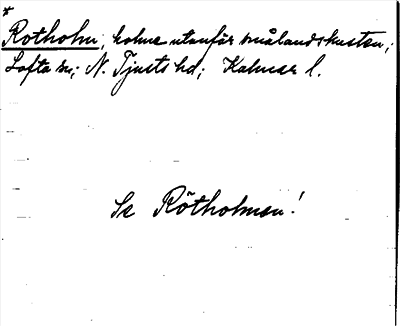 *
Rotholm, holme utanför smålandskusten;
Lofta sn; N. Tjusts hd; Kalmar l.
Se Rötholmen!